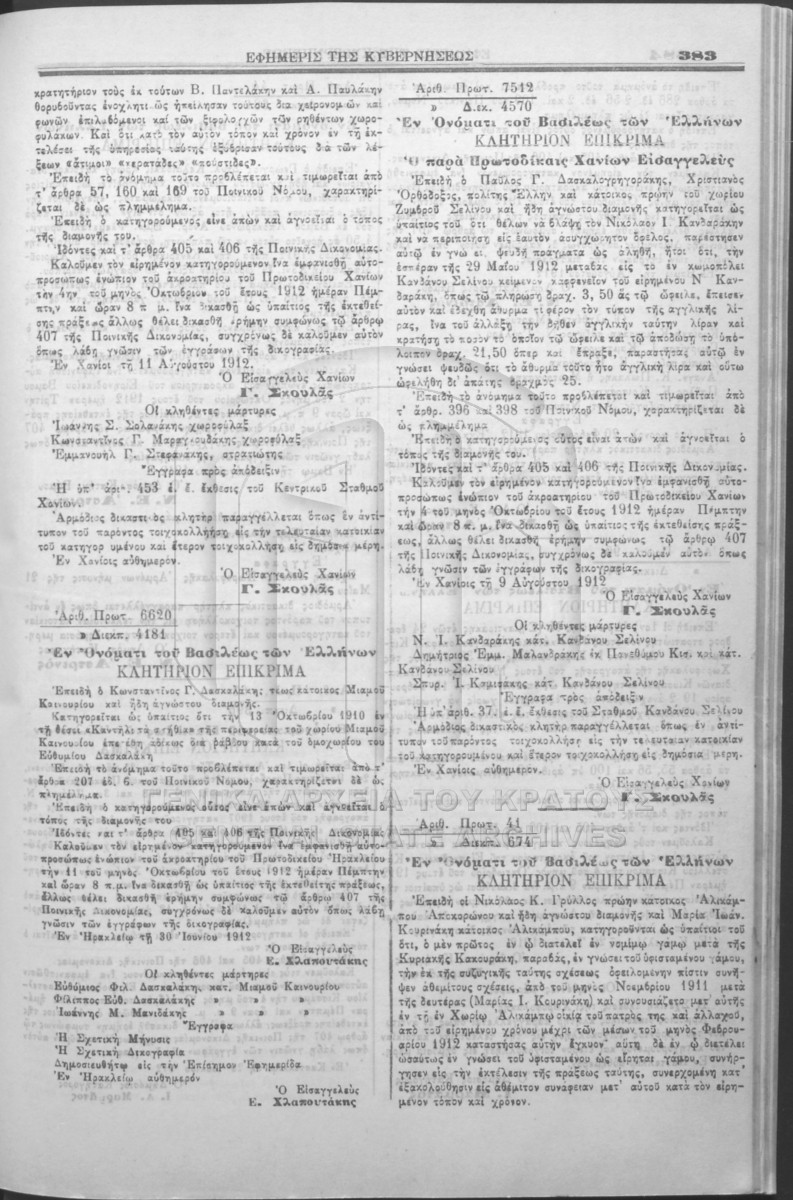 ΕΦΗΜΕΡΙΣ ΤΗΣ ΚΥΒΕΡΝΗΣΕΩΣ
383
κρατητήριον τοὺς ἐκ τούτων Β. Παντελάκην καὶ Α. Παυλάκην
θορυβοῦντας ἐνοχλητι ὡς ἠπείλησαν τούτους δια χειρονομιῶν καὶ
φωνῶν ἐπιλαβόμενοι καὶ τῶν ξιφολογχῶν τῶν ρηθέντων χωρο-
φυλάκων. Καὶ ὅτι κατὰ τὸν αὐτὸν τόπον καὶ χρόνον ἐν τῇ ἐκ-
τελέσει τῆς ὑπηρεσίας ταύτης ἐξύβρισαν τούτους διὰ τῶν λέ-
ξεων «ἄτιμοι» «κερατάδες» «πούστιδες».
Ἐπειδὴ τὸ ἀνόμημα τοῦτο προβλέπεται καὶ τιμωρεῖται ἀπὸ
τ' ἄρθρα 57, 160 καὶ 169 τοῦ Ποινικοῦ Νόμου, χαρακτηρί-
ζεται δὲ ὡς πλημμέλημα.
Ἐπειδὴ ὁ κατηγορούμενος εἶνε ἀπὼν καὶ ἀγνοεῖται ὁ τόπος
τῆς διαμονῆς του.
Ἰδόντες καὶ τ' ἄρθρα 405 καὶ 406 τῆς Ποινικῆς Δικονομίας.
Καλοῦμεν τὸν εἰρημένον κατηγορούμενον ἵνα ἐμφανισθῇ αὐτο-
προσώπως ἐνώπιον τοῦ ἀκροατηρίου τοῦ Πρωτοδικείου Χανίων
τὴν 4ην τοῦ μηνὸς Ὀκτωβρίου τοῦ ἔτους 1912 ἡμέραν Πέμ-
πτην καὶ ὥραν 8 π μ. ἵνα δικασθῇ ὡς ὑπαίτιος τῆς ἐκτεθεί-
σης πράξεως ἄλλως θέλει δικασθῆ ἐρήμην συμφώνως τῷ ἄρθρῳ
407 τῆς Ποινικῆς Δικονομίας, συγχρόνως δὲ καλοῦμεν αὐτὸν
ὅπως λάβῃ γνῶσιν τῶν ἐγγράφων τῆς δικογραφίας.
Ἐν Χανίοι τῇ 11 Αὐγούστου 1912.
Ὁ Εἰσαγγελεὺς Χανίων
Γ. Σκουλᾶς
Οἱ κληθέντες μάρτυρες
Ἰωάννης Σ. Σολανάκης χωροφύλαξ
Κωνσταντῖνος Γ. Μαραγκουδάκης χωροφύλαξ
Ἐμμανουὴλ Γ. Στεφανάκης, στρατιώτης
Ἔγγραφα πρὸς ἀπόδειξιν
Ἡ ὑπ' ἀριθ. 453 ἐ. ἔ. ἔκθεσις τοῦ Κεντρικοῦ Σταθμοῦ
Χανίων.
Ἁρμόδιος δικαστικὸς κλητὴρ παραγγέλλεται ὅπως ἐν ἀντί-
τυπον τοῦ παρόντος τοιχοκολλήσῃ εἰς τὴν τελευταίαν κατοικίαν
τοῦ κατηγορουμένου καὶ ἕτερον τοιχοκολλήσῃ εἰς δημόσια μέρη.
Ἐν Χανίοις αὐθημερόν.
Ὁ Εἰσαγγελεὺς Χανίων
Γ. Σκουλᾶς
Ἀριθ. Πρωτ. 6620
» Διεκπ. 4181
Ἐν Ὀνόματι τοῦ Βασιλέως τῶν Ἑλλήνων
ΚΛΗΤΗΡΙΟΝ ΕΠΙΚΡΙΜΑ
Ἐπειδὴ ὁ Κωνσταντῖνος Γ. Δασκαλάκης, τέως κάτοικος Μιαμοῦ
Καινουρίου καὶ ἤδη ἀγνώστου διαμονῆς.
Κατηγορεῖται ὡς ὑπαίτιος ὅτι τὴν 13 Ὀκτωβρίου 1910 ἐν
τῇ θέσει τῆς περιφερείας τοῦ χωρίου Μιαμοῦ
Καινουρίου ἐπετέθη ἀδίκως διὰ ράβδου κατὰ τοῦ ὁμοχωρίου του
Εὐθυμίου Δασκαλάκη
Ἐπειδὴ τὸ ἀνόμημα τοῦτο προβλέπεται καὶ τιμωρεῖται ἀπὸ τ'
ἄρθρα 207 ἐδ. 6. τοῦ Ποινικοῦ Νόμου, χαρακτηρίζεται δὲ ὡς
πλημμέλημα.
Ἐπειδὴ ὁ κατηγορούμενος οὗτος εἶνε ἀπὼν καὶ ἀγνοεῖται ὁ
τόπος τῆς διαμονῆς του
Ἰδόντες καὶ τ' ἄρθρα 405 καὶ 406 τῆς Ποινικῆς Δικονομίας
Καλοῦμεν τὸν εἰρημένον κατηγορούμενον ἵνα ἐμφανισθῇ αὐτο-
προσώπως ἐνώπιον τοῦ ἀκροατηρίου τοῦ Πρωτοδικείου Ἡρακλείου
τὴν 11 τοῦ μηνὸς Ὀκτωβρίου τοῦ ἔτους 1912 ἡμέραν Πέμπτην
καὶ ὥραν 8 π.μ. ἵνα δικασθῇ ὡς ὑπαίτιος τῆς ἐκτεθείσης πράξεως,
ἄλλως θέλει δικασθῆ ἐρήμην συμφώνως τῷ ἄρθρῳ 407 τῆς
Ποινικῆς Δικονομίας, συγχρόνως δὲ καλοῦμεν αὐτὸν ὅπως λάβῃ
γνῶσιν τῶν ἐγγράφων τῆς δικογραφίας.
Ἐν Ἡρακλείῳ τῇ 30 Ἰουνίου 1912
Ὁ Εἰσαγγελεὺς
Ε. Χλαπουτάκης
Οἱ κληθέντες μάρτυρες
Εὐθύμιος Φιλ. Δασκαλάκης, κατ. Μιαμοῦ Καινουρίου
Φίλιππος Εὐθ. Δασκαλάκης » » »
Ἰωάννης Μ. Μανιδάκης » » »
Ἔγγραφα
Ἡ Σχετικὴ Μήνυσις
Ἡ Σχετικὴ Δικογραφία
Δημοσιευθήτω εἰς τὴν Ἐπίσημον Ἐφημερίδα
Ἐν Ἡρακλείῳ αὐθημερόν
Ὁ Εἰσαγγελεὺς
Ε. Χλαπουτάκης
Ἀριθ. Πρωτ. 7512
» Δ.εκ. 4570
Ἐν Ὀνόματι τοῦ Βασιλέως τῶν Ἑλλήνων
ΚΛΗΤΗΡΙΟΝ ΕΠΙΚΡΙΜΑ
Ὁ παρὰ Πρωτοδίκαις Χανίων Εἰσαγγελεὺς
Ἐπειδὴ ὁ Παῦλος Γ. Δασκαλογρηγοράκης, Χριστιανὸς
Ὀρθόδοξος, πολίτης Ἕλλην καὶ κάτοικος πρώην τοῦ χωρίου
Ζυμβροῦ Σελίνου καὶ ἤδη ἀγνώστου διαμονῆς κατηγορεῖται ὡς
ὑπαίτιος τοῦ ὅτι θέλων νὰ βλάψῃ τὸν Νικόλαον Ι. Κανδαράκην
καὶ νὰ περιποιήσῃ εἰς ἑαυτὸν ἀσυγχώρητον ὄφελος, παρέστησεν
αὐτῷ ἐν γνώσει ψευδῆ πράγματα ὡς ἀληθῆ, ἤτοι ὅτι, τὴν
ἑσπέραν τῆς 29 Μαΐου 1912 μεταβὰς εἰς τὸ ἐν κωμοπόλει
Κανδάνου Σελίνου κείμενον καφφενεῖον τοῦ εἰρημένου Ν Καν-
δαράκη, ὅπως τῷ πληρώσῃ δραχ. 3,50 ἃς τῷ ὤφειλε, ἔπεισεν
αὐτὸν νὰ δεχθῇ ἄθυρμα τι φέρον τὸν τύπον τῆς ἀγγλικῆς λί-
ρας, ἵνα τοῦ ἀλλάξῃ τὴν δῆθεν ἀγγλικὴν ταύτην λίραν καὶ
κρατήσῃ τὸ ποσὸν τὸ ὁποῖον τῷ ὤφειλε καὶ τῷ ἀποδώσῃ τὸ ὑπό-
λοιπον δραχ. 21,50 ὅπερ καὶ ἔπραξε, παραστήσας αὐτῷ ἐν
γνώσει ψευδῶς ὅτι τὸ ἄθυρμα τοῦτο ἦτο ἀγγλικὴ λίρα καὶ οὕτω
ὠφελήθη δι' ἀπάτης δραχμὰς 25.
Ἐπειδὴ τὸ ἀνόμημα τοῦτο προβλέπεται καὶ τιμωρεῖται ἀπὸ
τ' ἄρθρ. 396 καὶ 398 τοῦ Ποινικοῦ Νόμου, χαρακτηρίζεται δὲ
ὡς πλημμέλημα
Ἐπειδὴ ὁ κατηγορούμενος οὗτος εἶναι ἀπὼν καὶ ἀγνοεῖται ὁ
τόπος τῆς διαμονῆς του.
Ἰδόντες καὶ τ' ἄρθρα 405 καὶ 406 τῆς Ποινικῆς Δικονομίας.
Καλοῦμεν τὸν εἰρημένον κατηγορούμενον ἵνα ἐμφανισθῇ αὐτο-
προσώπως ἐνώπιον τοῦ ἀκροατηρίου τοῦ Πρωτοδικείου Χανίων
τὴν 4 τοῦ μηνὸς Ὀκτωβρίου τοῦ ἔτους 1912 ἡμέραν Πέμπτην
καὶ ὥραν 8 π. μ. ἵνα δικασθῇ ὡς ὑπαίτιος τῆς ἐκτεθείσης πράξ-
εως, ἄλλως θέλει δικασθῆ ἐρήμην συμφώνως τῷ ἄρθρῳ 407
τῆς Ποινικῆς Δικονομίας, συγχρόνως δὲ καλοῦμεν αὐτὸν ὅπως
λάβῃ γνῶσιν τῶν ἐγγράφων τῆς δικογραφίας.
Ἐν Χανίοις τῇ 9 Αὐγούστου 1912
Ὁ Εἰσαγγελεὺς Χανίων
Γ. Σκουλᾶς
Οἱ κληθέντες μάρτυρες
Ν. Ι. Κανδαράκης κάτ. Κανδάνου Σελίνου
Δημήτριος Ἐμμ. Μαλανδράκης ἐκ Πανεθύμου Κισ. καὶ κάτ.
Κανδάνου Σελίνου
Σπυρ. Ι. Κομιφάκης κάτ. Κανδάνου Σελίνου
Ἔγγραφα πρὸς ἀπόδειξιν
Ἡ ὑπ' ἀριθ. 37. ἐ. ἔ. ἔκθεσις τοῦ Σταθμοῦ Κανδάνου Σελίνου
Ἁρμόδιος δικαστικὸς κλητὴρ παραγγέλλεται ὅπως ἐν ἀντί-
τυπον τοῦ παρόντος τοιχοκολλήσῃ εἰς τὴν τελευταίαν κατοικίαν
τοῦ κατηγορουμένου καὶ ἕτερον τοιχοκολλήσῃ εἰς δημόσια μέρη.
Ἐν Χανίοις αὐθημερον.
Ὁ Εἰσαγγελεὺς Χανίων
Γ. Σκουλᾶς
Ἀριθ. Πρωτ. 41
Διεκπ. 674
Ἐν Ὀνόματι τοῦ Βασιλέως τῶν Ἑλλήνων
ΚΛΗΤΗΡΙΟΝ ΕΠΙΚΡΙΜΑ
Ἐπειδὴ οἱ Νικόλαος Κ. Γρύλλος πρώην κάτοικος Ἀλικάμ-
που Ἀποκορώνου καὶ ἤδη ἀγνώστου διαμονῆς καὶ Μαρία Ἰωάν.
Κουρινάκη κάτοικος Ἀλικάμπου, κατηγοροῦνται ὡς ὑπαίτιοι τοῦ
ὅτι, ὁ μὲν πρῶτος ἐν ᾧ διατελεῖ ἐν νομίμῳ γάμῳ μετὰ τῆς
Κυριακῆς Κακουράκη, παραβάς, ἐν γνώσει τοῦ ὑφισταμένου γάμου,
τὴν ἐκ τῆς συζυγικῆς ταύτης σχέσεως ὀφειλομένην πίστιν συνῆ-
ψεν ἀθεμίτους σχέσεις, ἀπὸ τοῦ μηνὸς Νοεμβρίου 1911 μετὰ
τῆς δευτέρας (Μαρίας Ι. Κουρινάκη) καὶ συνουσιάζετο μετ' αὐτῆς
ἐν τῇ ἐν Χωρίῳ Ἀλικάμπῳ οἰκίᾳ τοῦ πατρός της καὶ ἀλλαχοῦ,
ἀπὸ τοῦ εἰρημένου χρόνου μέχρι τῶν μέσων τοῦ μηνὸς Φεβρου-
αρίου 1912 καταστήσας αὐτὴν ἔγκυον· αὕτη δὲ ἐν ᾧ διετέλει
ὡσαύτως ἐν γνώσει τοῦ ὑφισταμένου ὡς εἴρηται γάμου, συνήρ-
γησεν εἰς τὴν ἐκτέλεσιν τῆς πράξεως ταύτης, συνερχομένη κατ'
ἐξακολούθησιν εἰς ἀθέμιτον συνάφειαν μετ' αὐτοῦ κατὰ τὸν εἰρη-
μένον τόπον καὶ χρόνον.
ΓΕΝΙΚΑ ΑΡΧΕΙΑ ΤΟΥ ΚΡΑΤΟΥΣ
STATE ARCHIVES